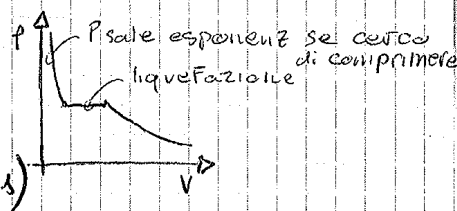 P sale esponenz se cerco
di comprimere
P
liquefazione
V
s)